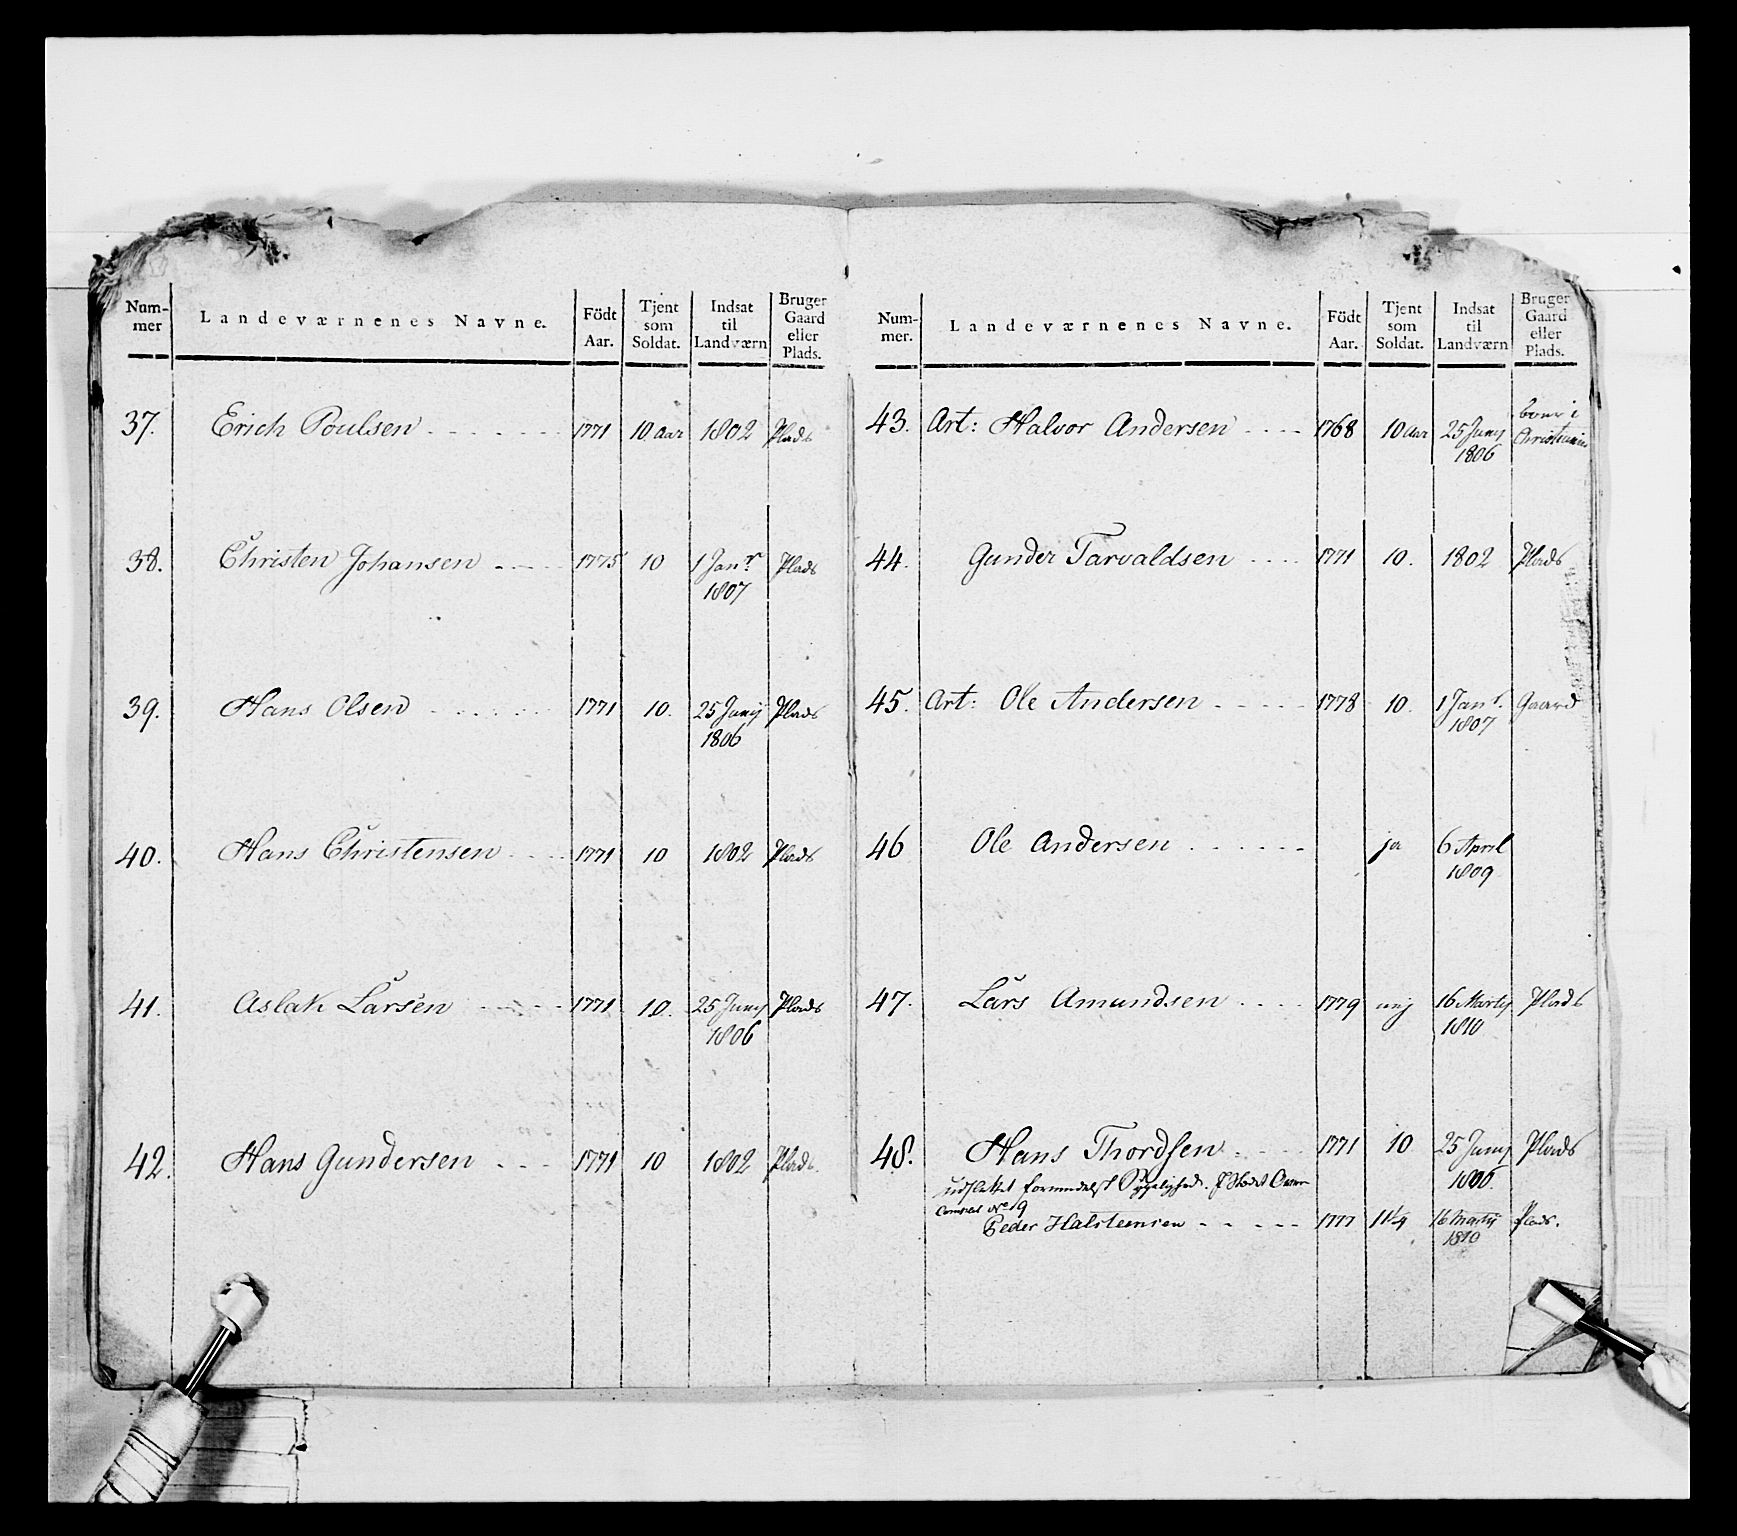 Num-
mer
Landeværnenes Navne.
Födt
Aar.
Tjent
som
Soldat.
Indsat
til
Landværn
Bruger
Gaard
eller
Plads.
37. Erich Poulsen 1771 10 Aar 1802 Plads
38. Christen Johansen 1775 10 1 Janr. Plads
1807
39. Hans Olsen 1771 10. 25 Junij Plads
1806
40. Hans Christensen 1771 10 1802 Plads
41. Aslak Larsen 1771 10. 25 Junij Plads
1806
42. Hans Gundersen 1771 10 1802 Plads.
Num-
mer.
Landeværnenes Navne.
Födt
Aar.
Tjent
som
Soldat.
Indsat
til
Landværn
Bruger
Gaard
eller
Plads.
43. Art: Halvor Andersen 1768 10 Aar 25 Junij i
1806 Christiania
44. Gunder Tarvaldsen 1771 10. 1802 Plads
45. Art: Ole Andersen 1778 10. 1 Janr. Gaard
1807
46 Ole Andersen ja 6 April
1809
47. Lars Amundsen 1779 nej 16 Martij Plads
1810
48. Hans Thordsen 1771 10 25 Junij Plads
1806.
udslettet formedelst Svagelighed.
No 9
Peder Halsteensen 1777 11¼ 16 Martij Plads.
1810